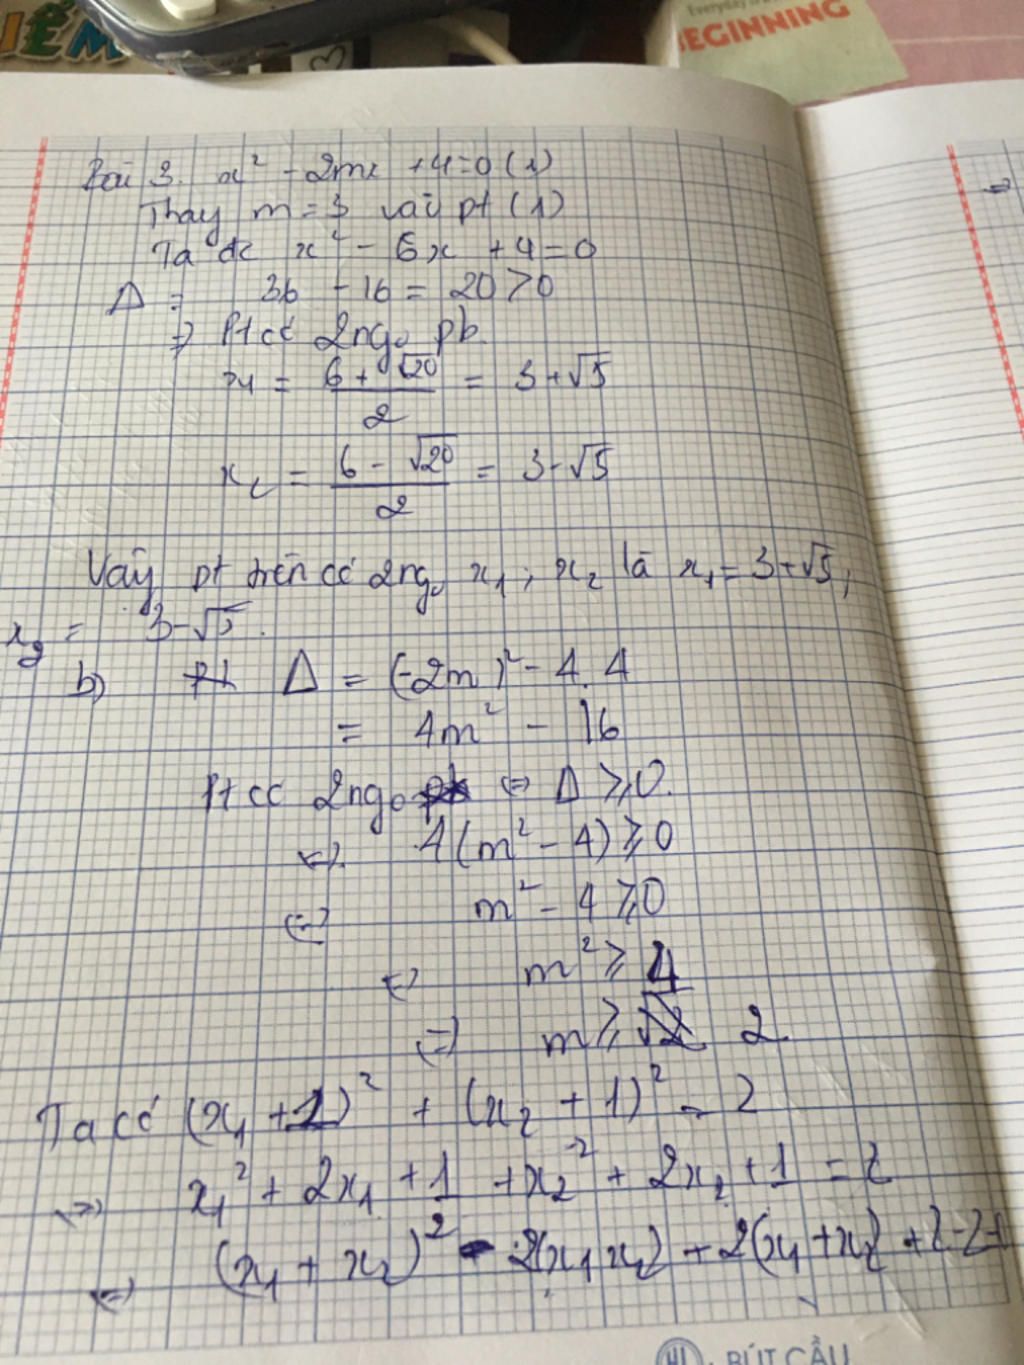 IỂM
Everyday is a
BEGINNING
Bài 3. x² - 2mx + 4 = 0 (1)
Thay m = 3 vào pt (1)
Ta đc x² - 6x + 4 = 0
Δ = 36 - 16 = 20 > 0
=> Pt có 2 ngo pb.
x₁ = (6 + √20)/2 = 3 + √5
x₂ = (6 - √20)/2 = 3 - √5
Vậy pt trên có 2 ngo x₁ ; x₂ là x₁ = 3 + √5 ;
x₂ = 3 - √5.
b) Δ = (-2m)² - 4. 4
= 4m² - 16
Pt có 2 ngo <=> Δ ⩾ 0.
<=> 4(m² - 4) ⩾ 0
<=> m² - 4 ⩾ 0
<=> m² ⩾ 4
=> m ⩾ 2
Ta có (x₁ + 1)² + (x₂ + 1)² = 2
<=> x₁² + 2x₁ + 1 + x₂² + 2x₂ + 1 = 2
<=> (x₁ + x₂)² - 2(x₁ x₂) + 2(x₁ + x₂) + 2 - 2 =
BÚT CẦU